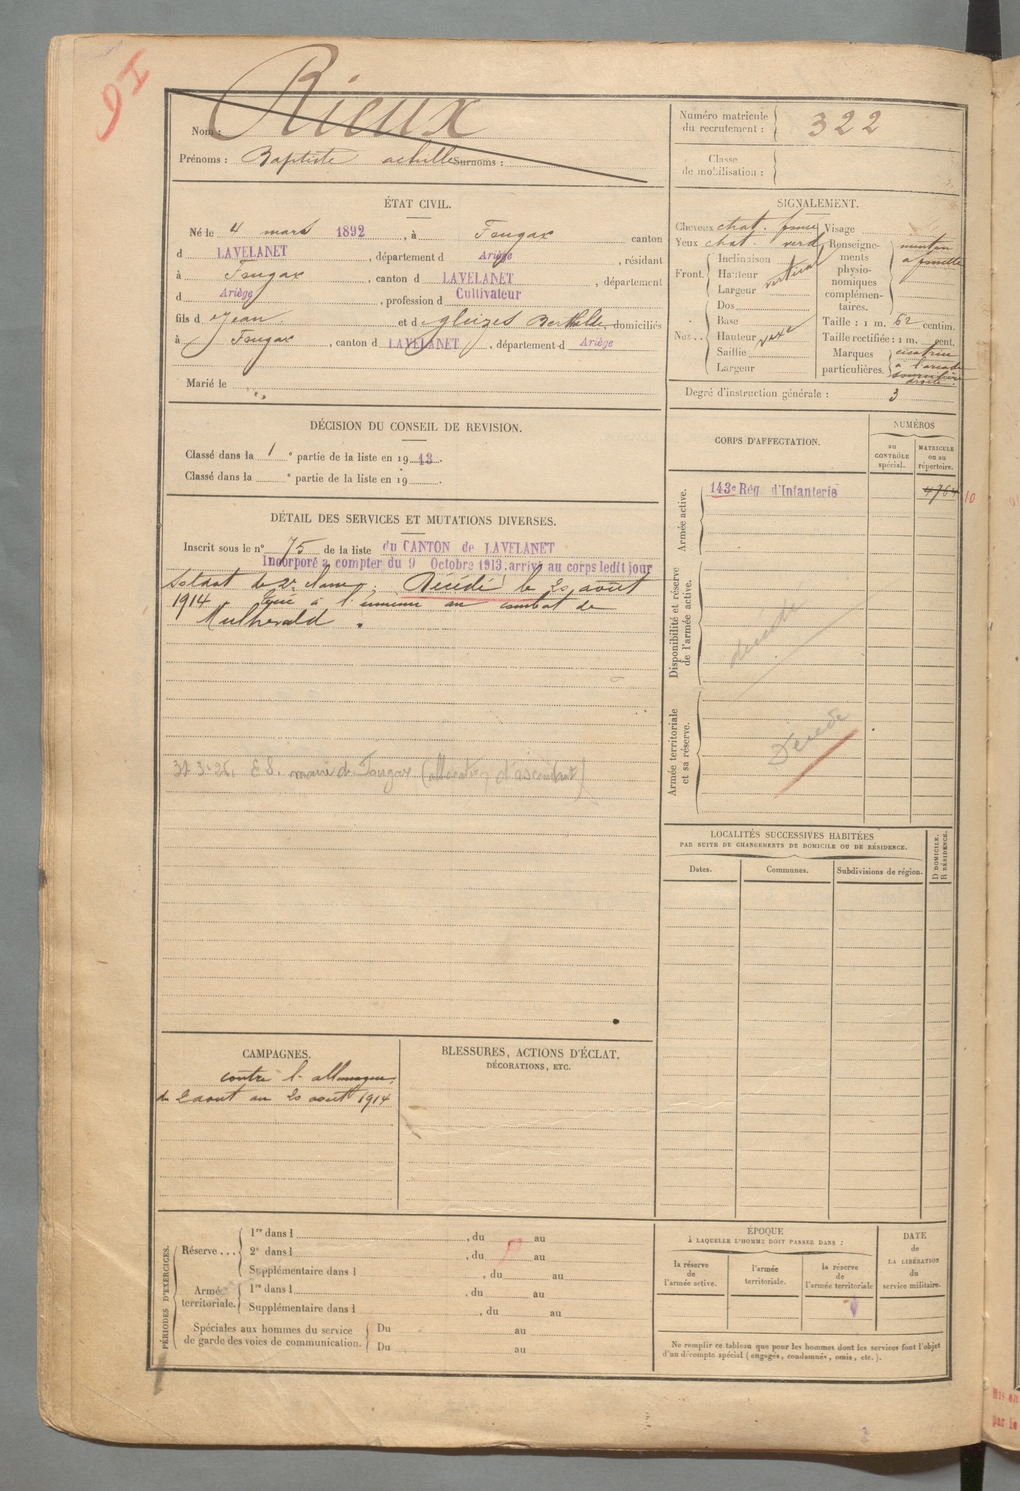 Rieux
Nom :
Prénoms : Baptiste achille Surnoms :
Numéro matricule
du recrutement : 322
Classe
de mobilisation :
ÉTAT CIVIL.
Né le 4 mars 1892, à Fougax canton
d LAVELANET, département d Ariège, résidant
à Fougax, canton d LAVELANET, département
d Ariège, profession d Cultivateur
fils d Jean et d gleizes Berthe, domiciliés
à Fougax, canton d LAVELANET, département d Ariège
Marié le
SIGNALEMENT.
Cheveux chat. foncé Visage
Yeux chat. verd Renseigne-
ments
physio-
nomiques
complémen-
taires. menton
à fossette
Front. Inclinaison
Hauteur vertical
Largeur
Nez.. Dos
Base
Hauteur vexe
Saillie
Largeur
Taille : 1 m. 62 centim.
Taille rectifiée : 1 m. cent.
Marques
particulières. cicatrice
à l'arcade
sourcilière
droite
Degré d'instruction générale : 3
DÉCISION DU CONSEIL DE REVISION.
Classé dans la 1e partie de la liste en 1913.
Classé dans la e partie de la liste en 19
DÉTAIL DES SERVICES ET MUTATIONS DIVERSES.
Inscrit sous le n° 75 de la liste du CANTON de LAVELANET
Incorporé à compter du 9 Octobre 1913. arrivé au corps ledit jour
Soldat de 2e classe. Décédé le 20 août
1914 Tué à l'ennemi au combat de
31-3-26. E.S. mairie de Fougax (allocation d'ascendant)
CORPS D'AFFECTATION.
NUMÉROS
au
CONTRÔLE
spécial.
MATRICULE
ou au
répertoire.
Armée active.
143e Rég. d'Infanterie
4764
10
Disponibilité et réserve
de l'armée active.
décédé
Armée territoriale
et sa réserve.
Décédé
LOCALITÉS SUCCESSIVES HABITÉES
PAR SUITE DE CHANGEMENTS DE DOMICILE OU DE RÉSIDENCE.
D DOMICILE.
R RÉSIDENCE.
Dates.
Communes.
Subdivisions de région.
CAMPAGNES.
contre l'allemagne
du 2 aout au 20 août 1914
BLESSURES, ACTIONS D'ÉCLAT,
DÉCORATIONS, ETC.
PÉRIODES D'EXERCICES.
Réserve... 1re dans l , du au
2e dans l , du au
Supplémentaire dans l , du au
Armée
territoriale. 1re dans l , du au
Supplémentaire dans l , du au
Spéciales aux hommes du service
de garde des voies de communication. Du au
Du au
ÉPOQUE
À LAQUELLE L'HOMME DOIT PASSER DANS :
la réserve
de
l'armée active.
l'armée
territoriale.
la réserve
de
l'armée territoriale
DATE
de
LA LIBÉRATION
du
service militaire.
Ne remplir ce tableau que pour les hommes dont les services font l'objet
d'un décompte spécial (engagés, condamnés, omis, etc.).